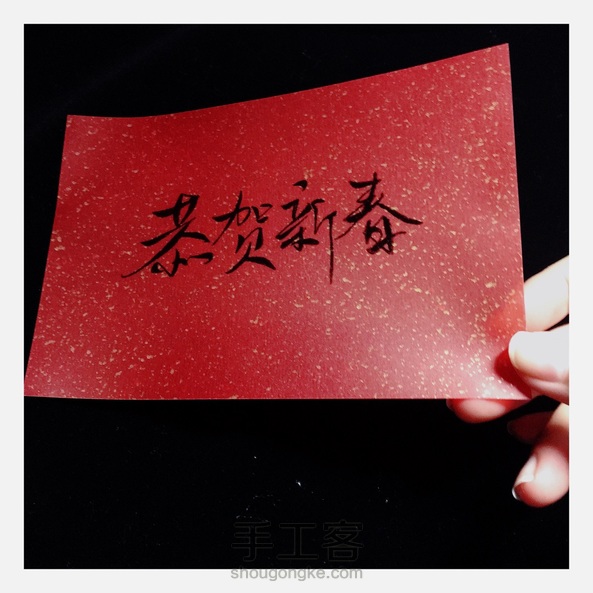 恭贺新春
手工客
shougongke.com